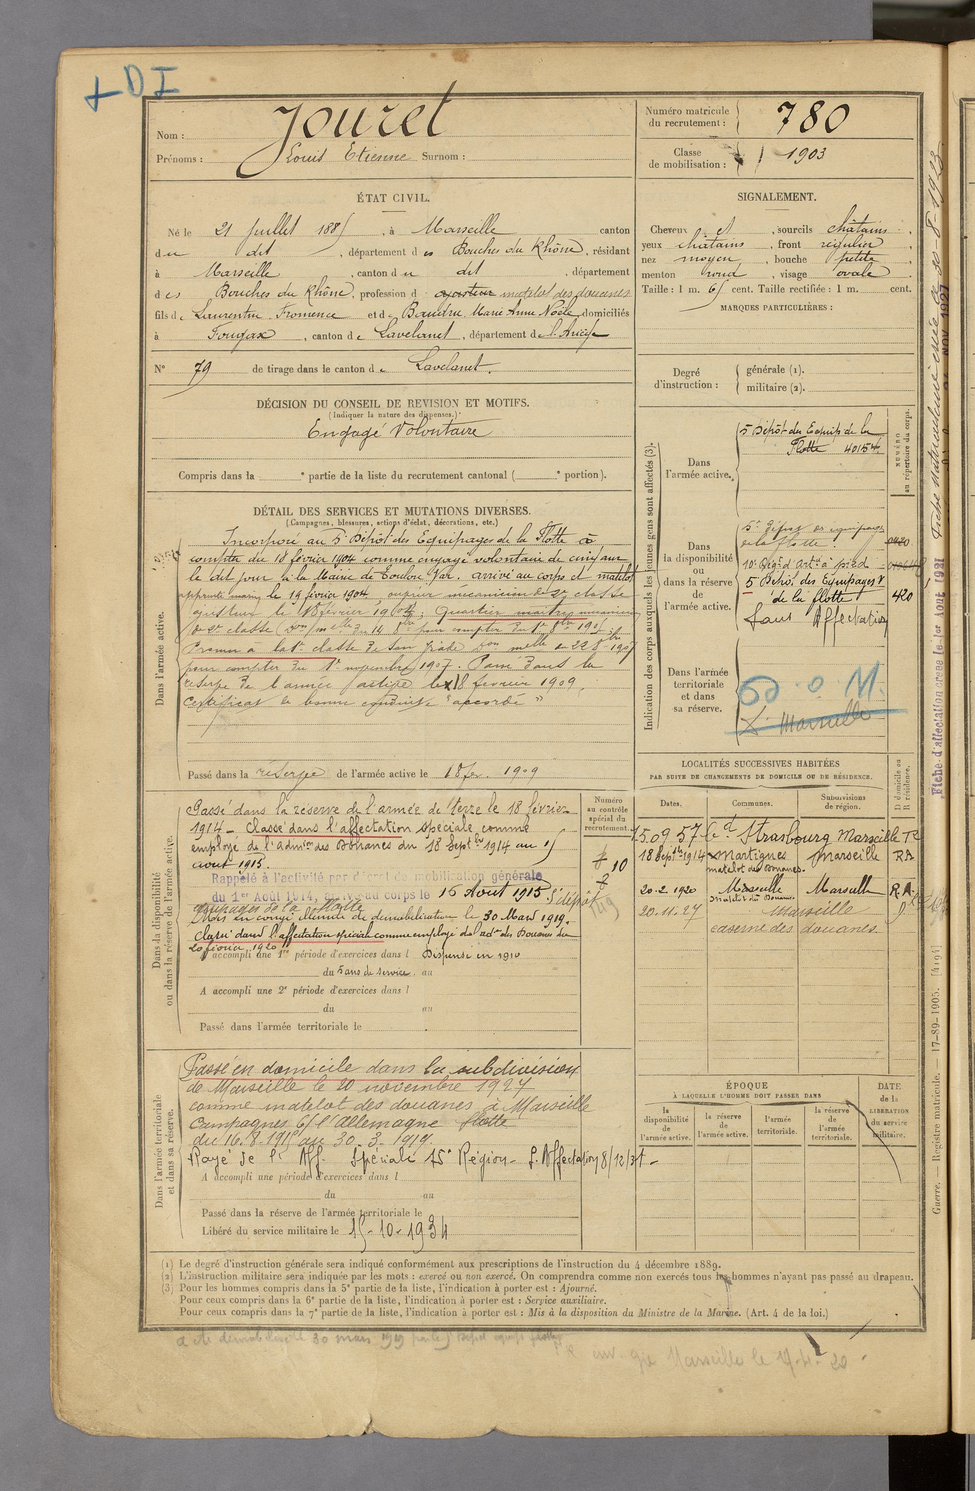 + DI
Nom : Jouret
Prénoms : Louis Etienne Surnom :
Numéro matricule du recrutement : 780
Classe de mobilisation : 1903
ÉTAT CIVIL.
Né le 21 juillet 1885, à Marseille canton
du dit, département des Bouches du Rhône, résidant
à Marseille, canton du dit, département
des Bouches du Rhône, profession d matelot des douanes
fils de Laurentin Fromence et de Baudru Marie Anne Noële, domiciliés
à Fougax, canton de Lavelanet, département de l'Ariège
N° 79 de tirage dans le canton de Lavelanet.
SIGNALEMENT.
Cheveux et, sourcils châtains,
yeux châtains, front régulier
nez moyen, bouche petite,
menton rond, visage ovale
Taille : 1 m. 65 cent. Taille rectifiée : 1 m. cent.
MARQUES PARTICULIÈRES :
Degré d'instruction : générale (1).
militaire (2).
DÉCISION DU CONSEIL DE REVISION ET MOTIFS.
(Indiquer la nature des dispenses.)
Engagé Volontaire
Compris dans la e partie de la liste du recrutement cantonal ( e portion).
DÉTAIL DES SERVICES ET MUTATIONS DIVERSES.
(Campagnes, blessures, actions d'éclat, décorations, etc.)
Dans l'armée active.
Incorporé au 5e Dépôt des Equipages de la Flotte à
compter du 18 février 1904 comme engagé volontaire de cinq ans
le dit jour à la Mairie de Toulon Var. arrivé au corps et matelot
le 19 février 1904 ouvrier mécanicien de 2e classe
Quartier maître mécanicien
de 2e classe
Promu à la 1e classe de son grade
pour compter du 1er novembre 1907. Passé dans la
réserve de l'armée active le 18 février 1909.
Certificat de bonne conduite "accordé"
Passé dans la réserve de l'armée active le 18 fev. 1909
Indication des corps auxquels les jeunes gens sont affectés (3).
NUMÉRO au répertoire du corps.
Dans l'armée active.
5e Dépôt des Equip. de la
Flotte 4015
Dans la disponibilité ou dans la réserve de l'armée active.
5e Dépôt des équipages
de la flotte.
10e Régt d'Artie à pied
5 Dépôt des Equipages
de la flotte 420
Sans Affectation
Dans l'armée territoriale et dans sa réserve.
Marseille
LOCALITÉS SUCCESSIVES HABITÉES
PAR SUITE DE CHANGEMENTS DE DOMICILE OU DE RÉSIDENCE.
Dates. Communes. Subdivisions de région. D domicile ou R résidence.
Strasbourg Marseille
18 Septbre 1914 Martigues Marseille RA
matelot des Douanes.
20-2-1920 Marseille Marseille R.A.
matelot des Douanes.
20.11.27 Marseille
caserne des douanes.
Dans la disponibilité ou dans la réserve de l'armée active.
Numéro au contrôle spécial du recrutement.
Passé dans la réserve de l'armée de terre le 18 février
1914 - Classé dans l'affectation spéciale comme
employé de l'admion des Douanes du 18 Septbre 1914 au 15
août 1915.
Rappelé à l'activité par décret de mobilisation générale
du 1er Août 1914, arrivé au corps le 16 août 1915 5e dépôt
équipages de la flotte
Mis en congé illimité de démobilisation le 30 Mars 1919.
Classé dans l'affectation spéciale comme employé de l'adon des Douanes du
20 février 1920
A accompli une 1re période d'exercices dans l Dispensé en 1910
du 5 ans de service. au
A accompli une 2e période d'exercices dans l
du au
Passé dans l'armée territoriale le
Dans l'armée territoriale et dans sa réserve.
Passé en domicile dans la subdivision
de Marseille le 20 novembre 1927
comme matelot des douanes à Marseille
Campagnes c/ l'Allemagne flotte
du 16.8.1915 au 30.3.1919.
Rayé de l' Aff. Spéciale 15e Région - S. Affectation 8/12/31 -
A accompli une période d'exercices dans l
du au
Passé dans la réserve de l'armée territoriale le
Libéré du service militaire le 15-10-1934
ÉPOQUE
À LAQUELLE L'HOMME DOIT PASSER DANS
la disponibilité de l'armée active. la réserve de l'armée active. l'armée territoriale. la réserve de l'armée territoriale.
DATE de la LIBÉRATION du service militaire.
(1) Le degré d'instruction générale sera indiqué conformément aux prescriptions de l'instruction du 4 décembre 1889.
(2) L'instruction militaire sera indiquée par les mots : exercé ou non exercé. On comprendra comme non exercés tous les hommes n'ayant pas passé au drapeau.
(3) Pour les hommes compris dans la 5e partie de la liste, l'indication à porter est : Ajourné.
Pour ceux compris dans la 6e partie de la liste, l'indication à porter est : Service auxiliaire.
Pour ceux compris dans la 7e partie de la liste, l'indication à porter est : Mis à la disposition du Ministre de la Marine. (Art. 4 de la loi.)
a été démobilisé le 30 mars 1919
Marseille le
Guerre. Registre matricule. 17-89-1905. [4194]
Fiche d'affectation créée le 1er Août 1921